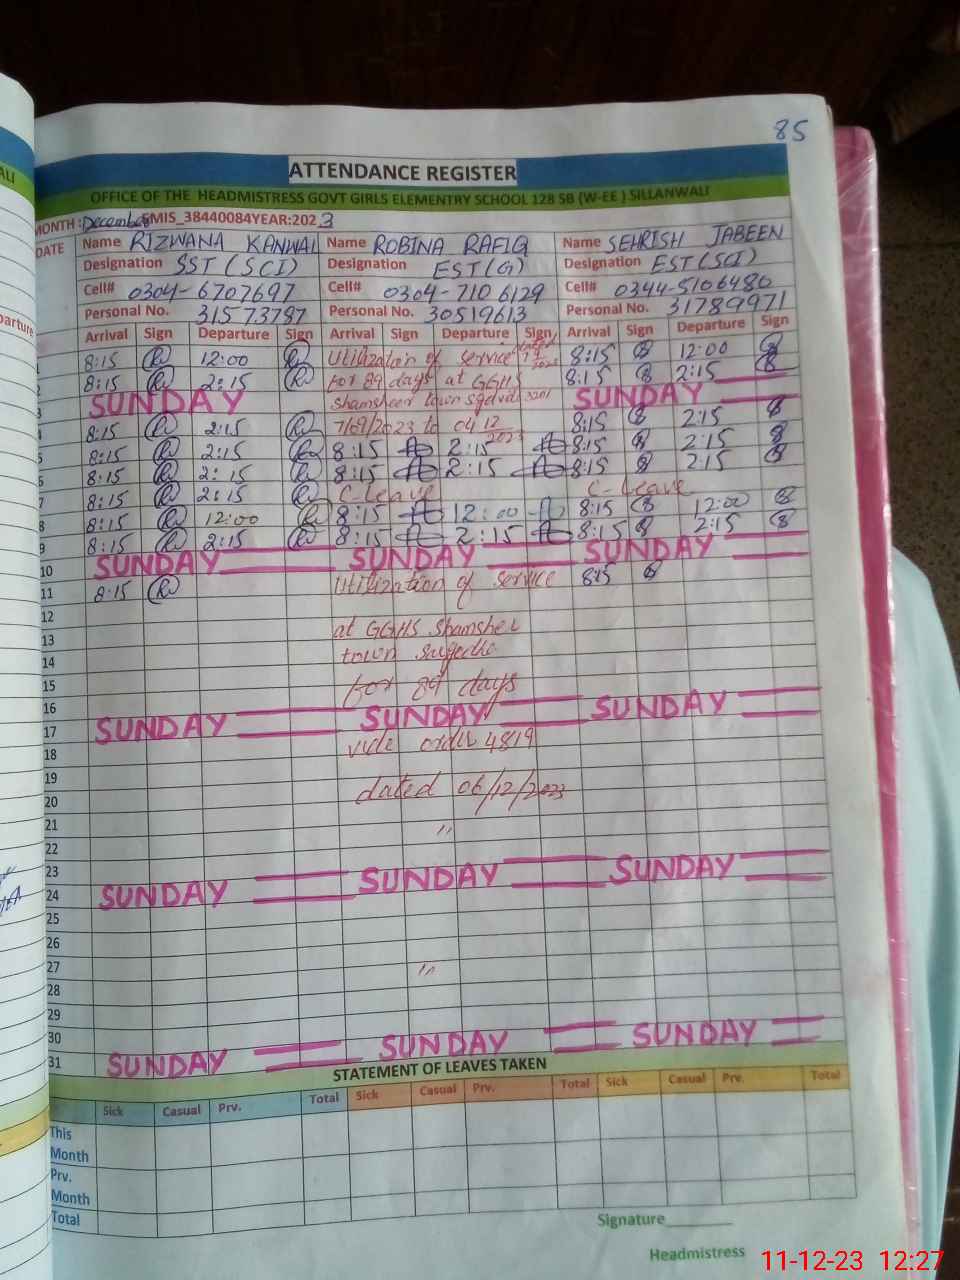 85
ATTENDANCE REGISTER
OFFICE OF THE HEADMISTRESS GOVT GIRLS ELEMENTRY SCHOOL 128 SB (W-EE ) SILLANWALI
MONTH :December EMIS_38440084YEAR:2023
DATE Name RIZWANA KANWAL Name ROBINA RAFIQ Name SEHRISH JABEEN
Designation SST (SCI) Designation EST (G) Designation EST (SCI)
Cell# 0304-6707697 Cell# 0304-7106129 0344-5106480
Personal No. 31573787 Personal No. 30519613 Personal No. 31789971
Arrival Sign Departure Sign Arrival Sign Departure Sign Arrival Sign Departure Sign
1 8:15 12:00 Utilization of service 8:15 12:00
2 8:15 2:15 for 89 days at GGHS 8:15 2:15
3 SUNDAY Shamsheer town 3201 SUNDAY
4 8:15 2:15 7/09/2023 to 04 12/2023 8:15 2:15
5 8:15 2:15 8:15 2:15 8:15 2:15
6 8:15 2:15 8:15 2:15 8:15 2:15
7 8:15 2:15 C-Leave C-Leave
8 8:15 12:00 8:15 12:00 8:15 12:00
9 8:15 2:15 8:15 2:15 8:15 2:15
10 SUNDAY SUNDAY SUNDAY
11 8:15 Utilization of service 8:15
12
13 at GGHS Shamsher
14 town
15 for 89 days
16
17 SUNDAY SUNDAY SUNDAY
18 vide order 4819
19
20 dated 06/12/2023
21 "
22
23
24 SUNDAY SUNDAY SUNDAY
25
26
27 "
28
29
30
31 SUNDAY SUNDAY SUNDAY
STATEMENT OF LEAVES TAKEN
Sick Casual Prv. Total Sick Casual Prv. Total Sick Casual Prv. Total
This
Month
Prv.
Month
Total
Signature
Headmistress
11-12-23 12:27